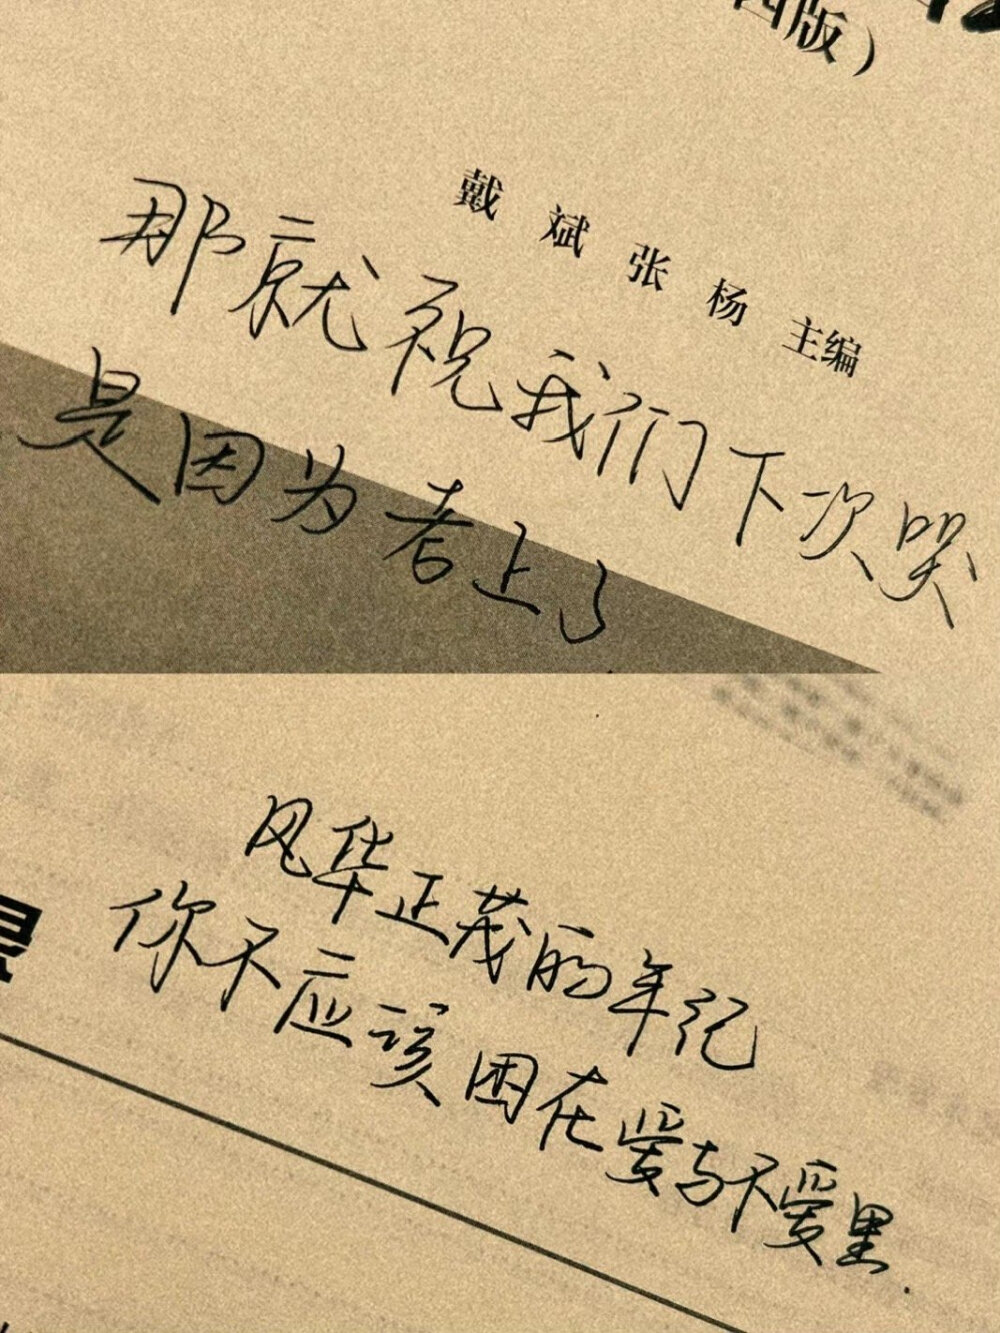 四版）
戴 斌 张 杨 主编
那就祝我们下次哭
是因为考上了
风华正茂的年纪
你不应该困在爱与不爱里.